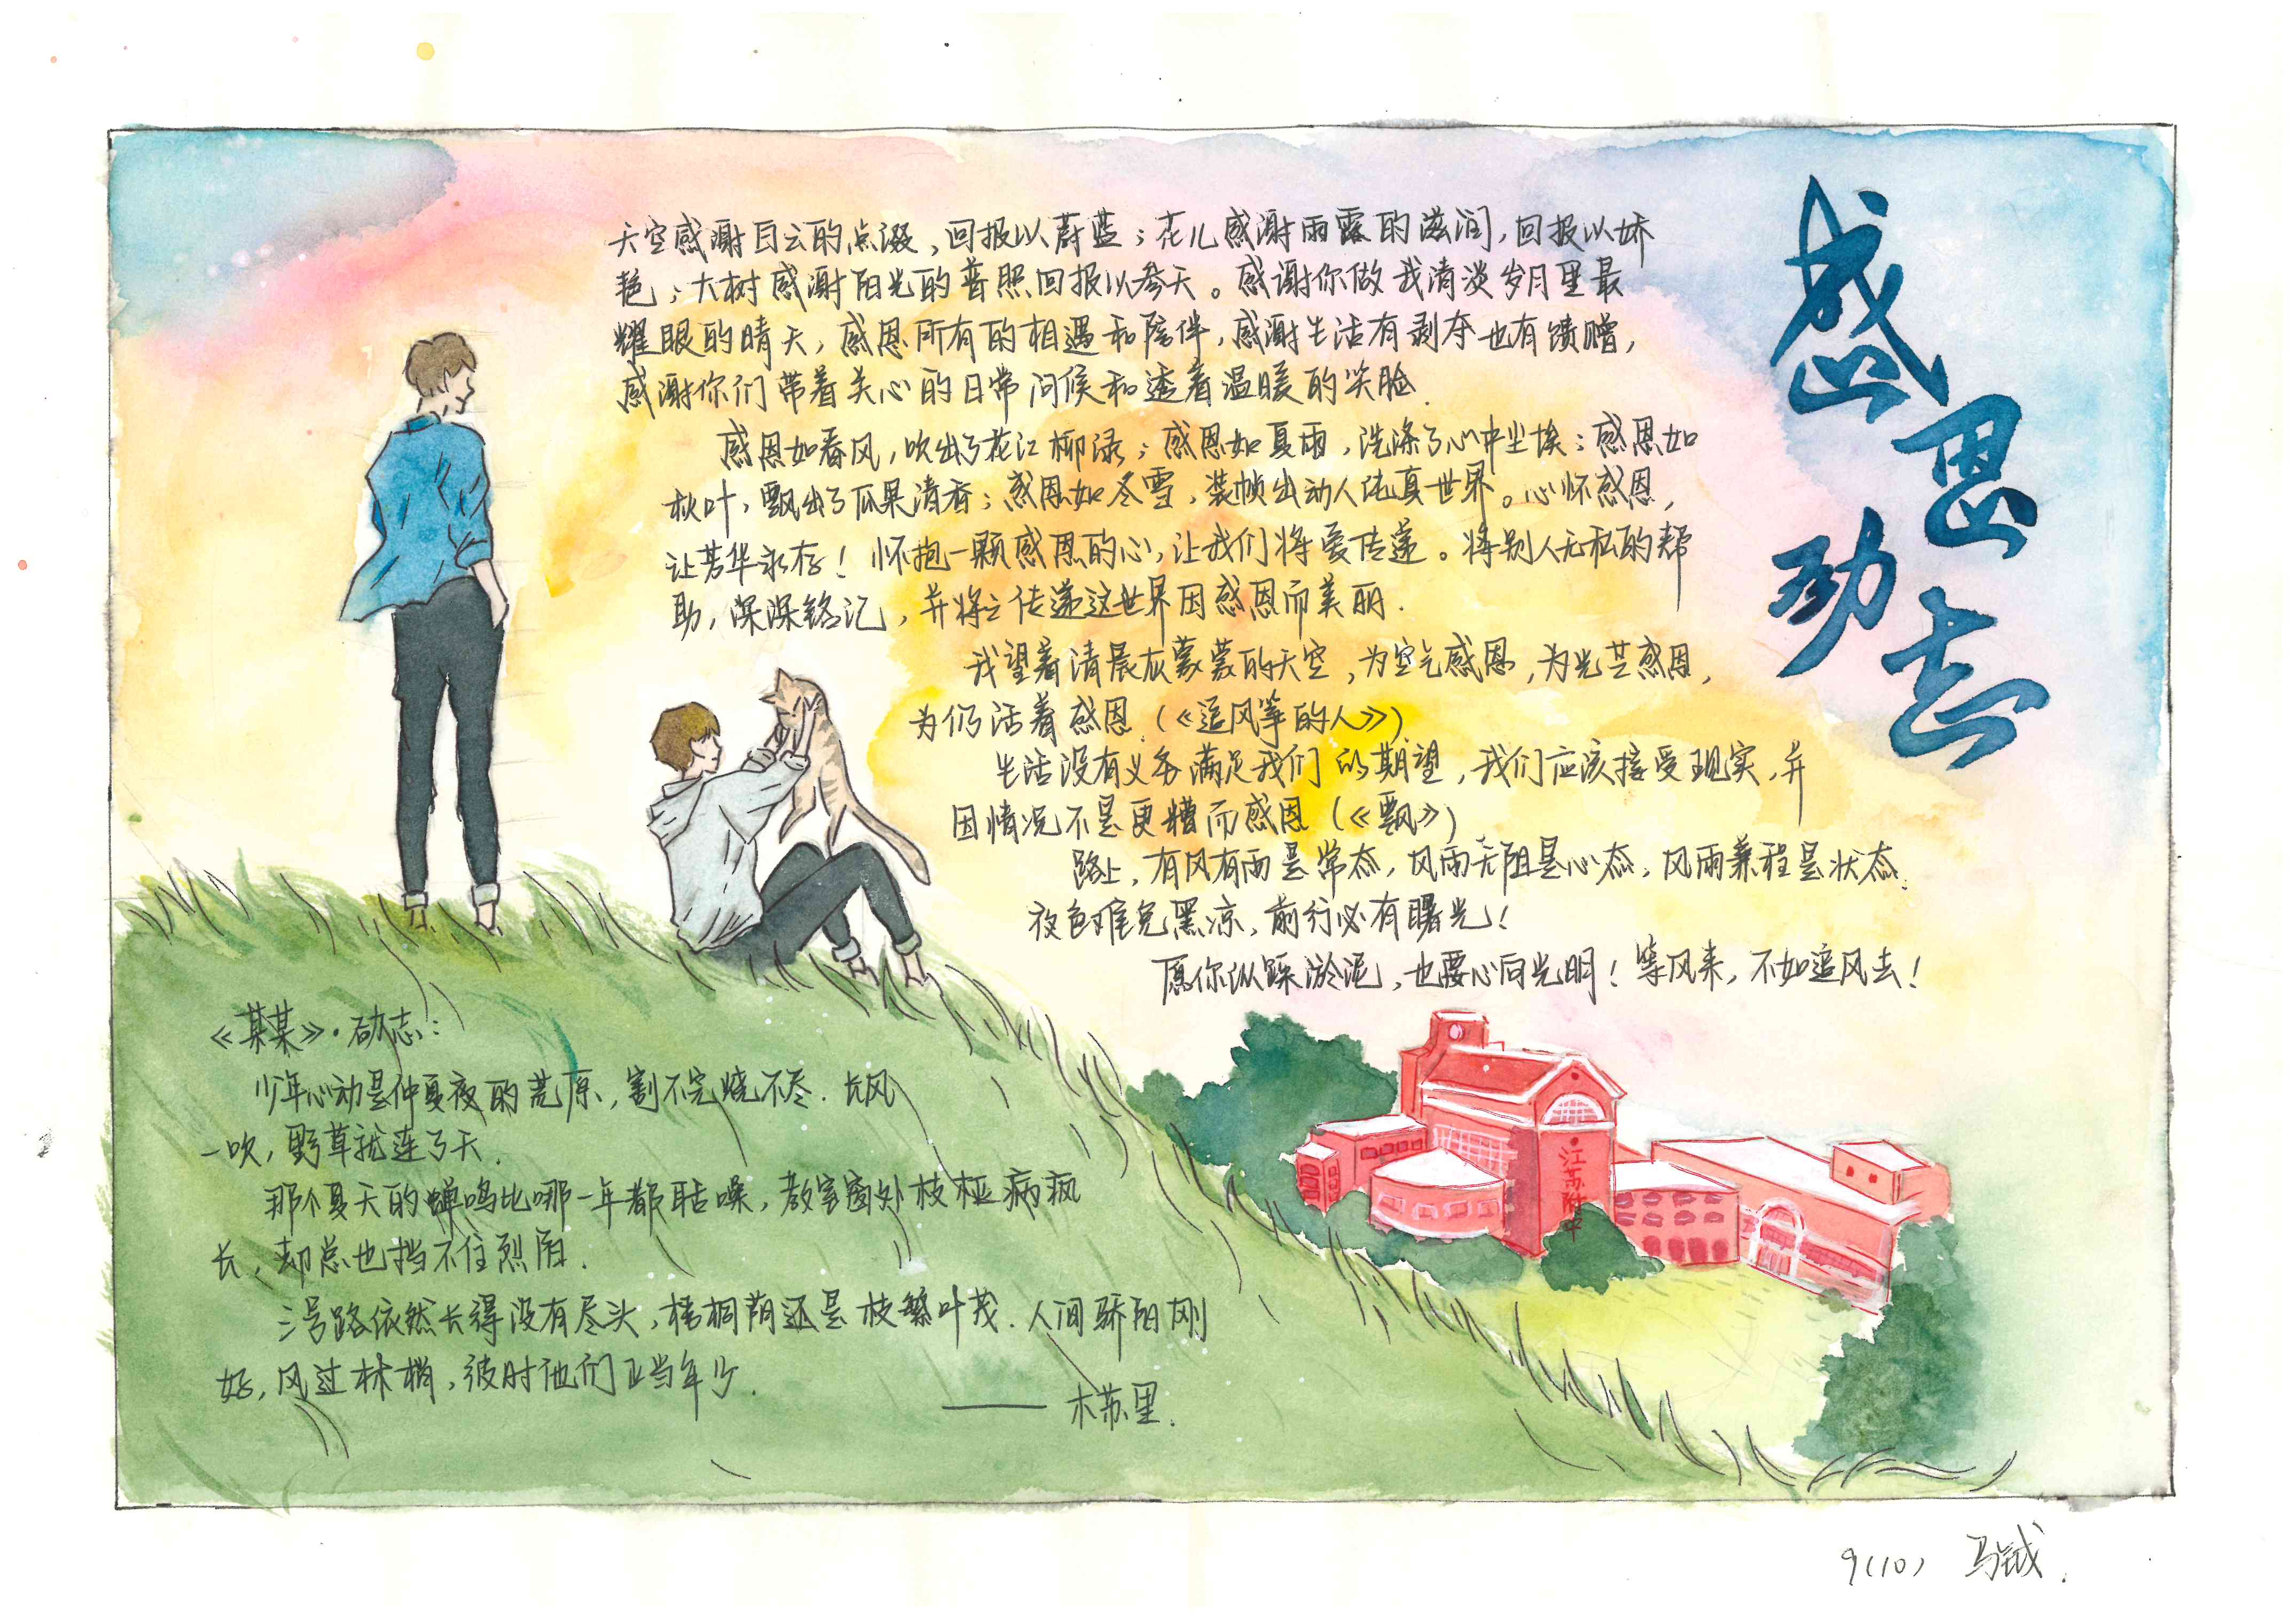 感恩
励志
天空感谢白云的点缀，回报以蔚蓝；花儿感谢雨露的滋润，回报以娇
艳；大树感谢阳光的普照回报以参天。感谢你做我清淡岁月里最
耀眼的晴天，感恩所有的相遇和陪伴，感谢生活有剥夺也有馈赠，
感谢你们带着关心的日常问候和透着温暖的笑脸.
感恩如春风，吹出了花江柳绿；感恩如夏雨，洗涤了心中尘埃；感恩如
秋叶，飘出了瓜果清香；感恩如冬雪，装帧出动人纯真世界。心怀感恩，
让芳华永存！怀抱一颗感恩的心，让我们将爱传递。将别人无私的帮
助，深深铭记，并将之传递这世界因感恩而美丽.
我望着清晨灰蒙蒙的天空，为空气感恩，为光芒感恩，
为仍活着感恩.（《追风筝的人》）
生活没有义务满足我们的期望，我们应该接受现实，并
因情况不是更糟而感恩（《飘》）
路上，有风有雨是常态，风雨无阻是心态，风雨兼程是状态.
夜色难免黑凉，前行必有曙光！
愿你纵踩淤泥，也要心向光明！等风来，不如追风去！
《某某》·励志：
少年心动是仲夏夜的荒原，割不完烧不尽.长风
一吹，野草就连了天.
那个夏天的蝉鸣比哪一年都聒噪，教室窗外枝桠疯
长，却总也挡不住烈阳.
三号路依然长得没有尽头，梧桐荫还是枝繁叶茂.人间骄阳刚
好，风过林梢，彼时他们正当年少.
——木苏里.
江苏附中
9(10) 马钺.